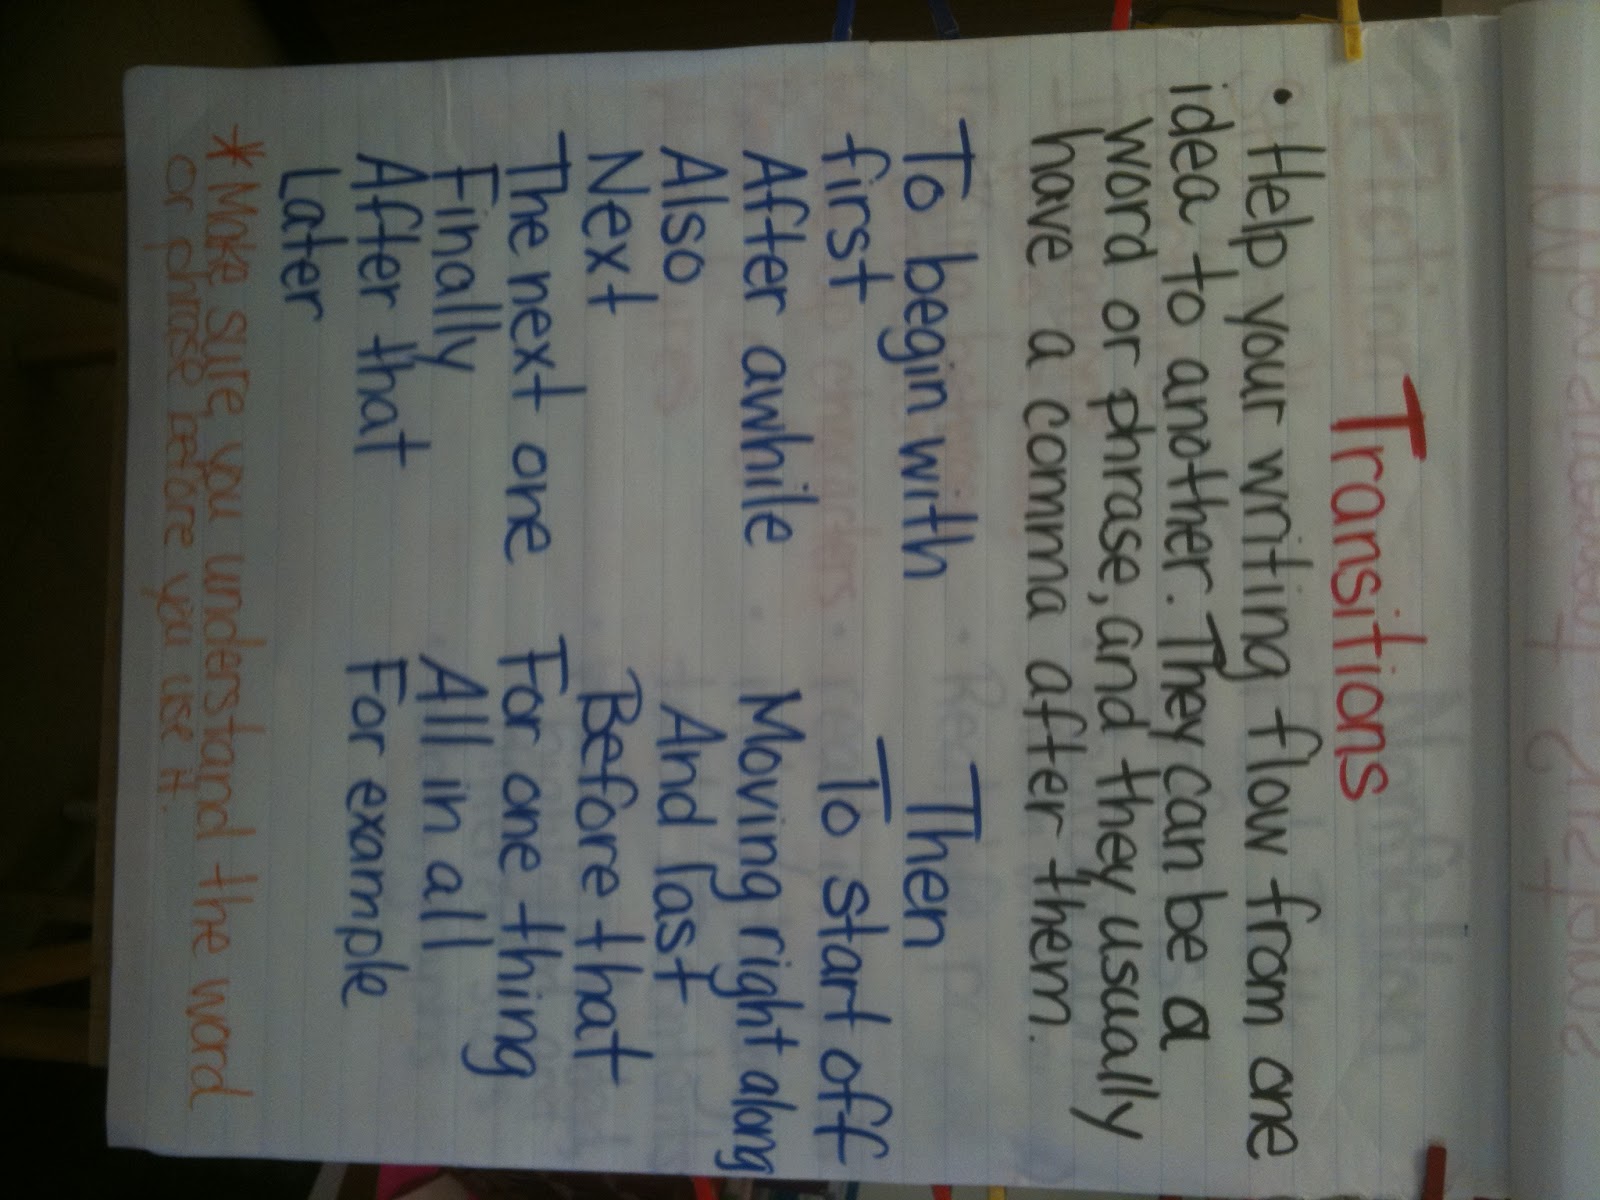 Transitions
• Help your writing flow from one
idea to another. They can be a
word or phrase, and they usually
have a comma after them.
To begin with Then
first To start off
After awhile Moving right along
Also And last
Next Before that
The next one For one thing
Finally All in all
After that For example
Later
* Make sure you understand the word
or phrase before you use it.